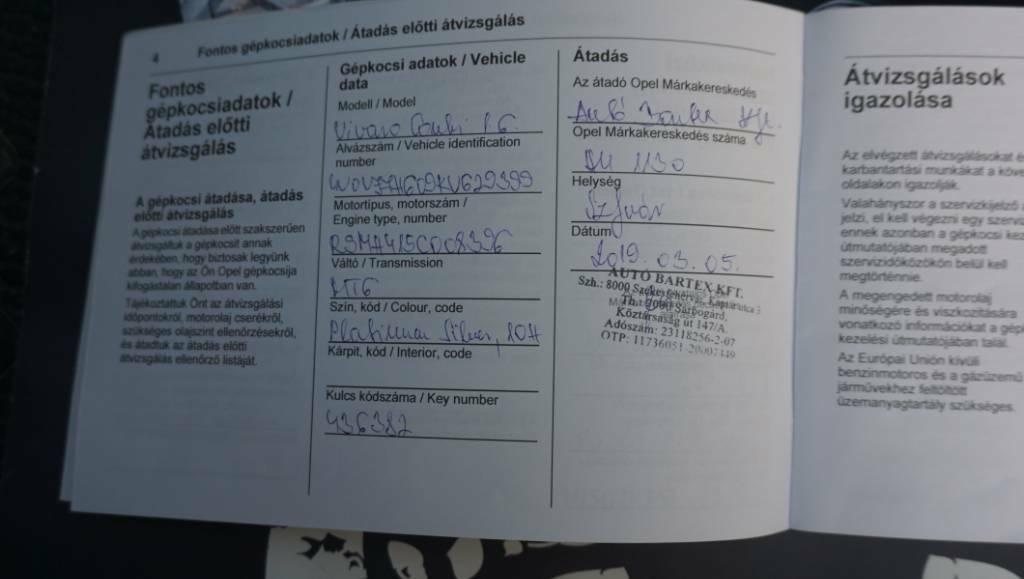 4 Fontos gépkocsiadatok / Átadás előtti átvizsgálás
Fontos
gépkocsiadatok /
Átadás előtti
átvizsgálás
A gépkocsi átadása, átadás
előtti átvizsgálás
A gépkocsi átadása előtt szakszerűen
átvizsgáltuk a gépkocsit annak
érdekében, hogy biztosak legyünk
abban, hogy az Ön Opel gépkocsija
kifogástalan állapotban van.
Tájékoztattuk Önt az átvizsgálási
időpontokról, motorolaj cserékről,
szükséges olajszint ellenőrzésekről,
és átadtuk az átadás előtti
átvizsgálás ellenőrző listáját.
Gépkocsi adatok / Vehicle
data
Modell / Model
Vivaro Combi 1.6
Alvázszám / Vehicle identification
number
Motortípus, motorszám /
Engine type, number
Váltó / Transmission
MT6
Szín, kód / Colour, code
Platinum Silver,
Kárpit, kód / Interior, code
Kulcs kódszáma / Key number
436382
Átadás
Az átadó Opel Márkakereskedés
Autó Kft.
Opel Márkakereskedés száma
1130
Helység
Dátum
2019. 03. 05.
AUTÓ BARTEX KFT.
Szh.: 8000 Székesfehérvár, 3
Th.: 7000 Sárbogárd,
Köztársaság út 147/A.
Adószám: 23118256-2-07
OTP: 11736051-20007449
Átvizsgálások
igazolása
Az elvégzett átvizsgálásokat és
karbantartási munkákat a
oldalakon igazolják.
Valahányszor a szervizkijelző
jelzi, el kell végezni egy
ennek azonban a gépkocsi
útmutatójában megadott
szervizidőközökön belül kell
megtörténnie.
A megengedett motorolaj
minőségére és viszkozitására
vonatkozó információkat a
kezelési útmutatójában talál.
Az Európai Unión kívüli
benzinmotoros és a gázüzemű
járművekhez feltöltött
üzemanyagtartály szükséges.